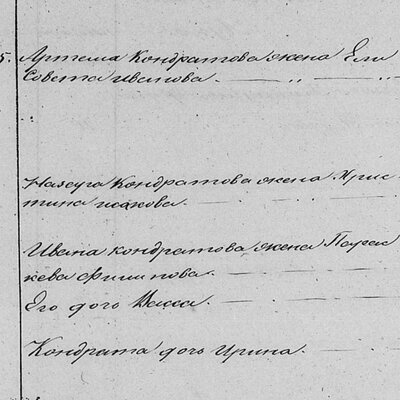 5. Артема Кондратова жена Ели
Совета иванова. — „ — „
Кондратова жена Хрис
тина исакова. —
Ивана кондратова жена Парас
кева филипова. —
Его дочь Васса. —
Кондрата дочь Ирина. —